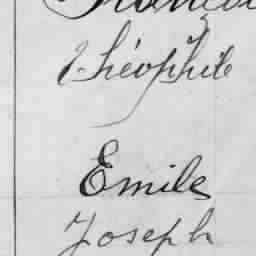 Théophile
Emile
Joseph